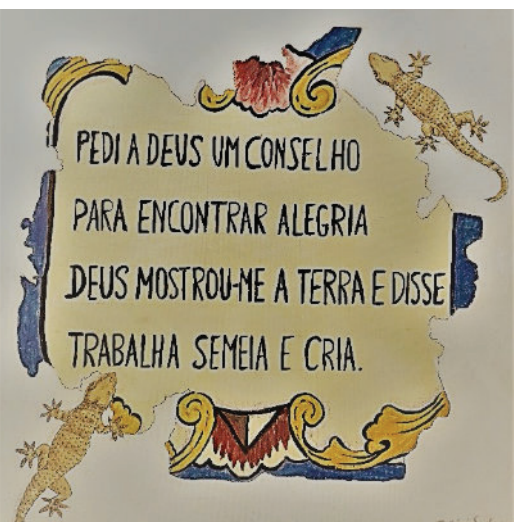 PEDI A DEUS UM CONSELHO
PARA ENCONTRAR ALEGRIA
DEUS MOSTROU-ME A TERRA E DISSE
TRABALHA SEMEIA E CRIA.